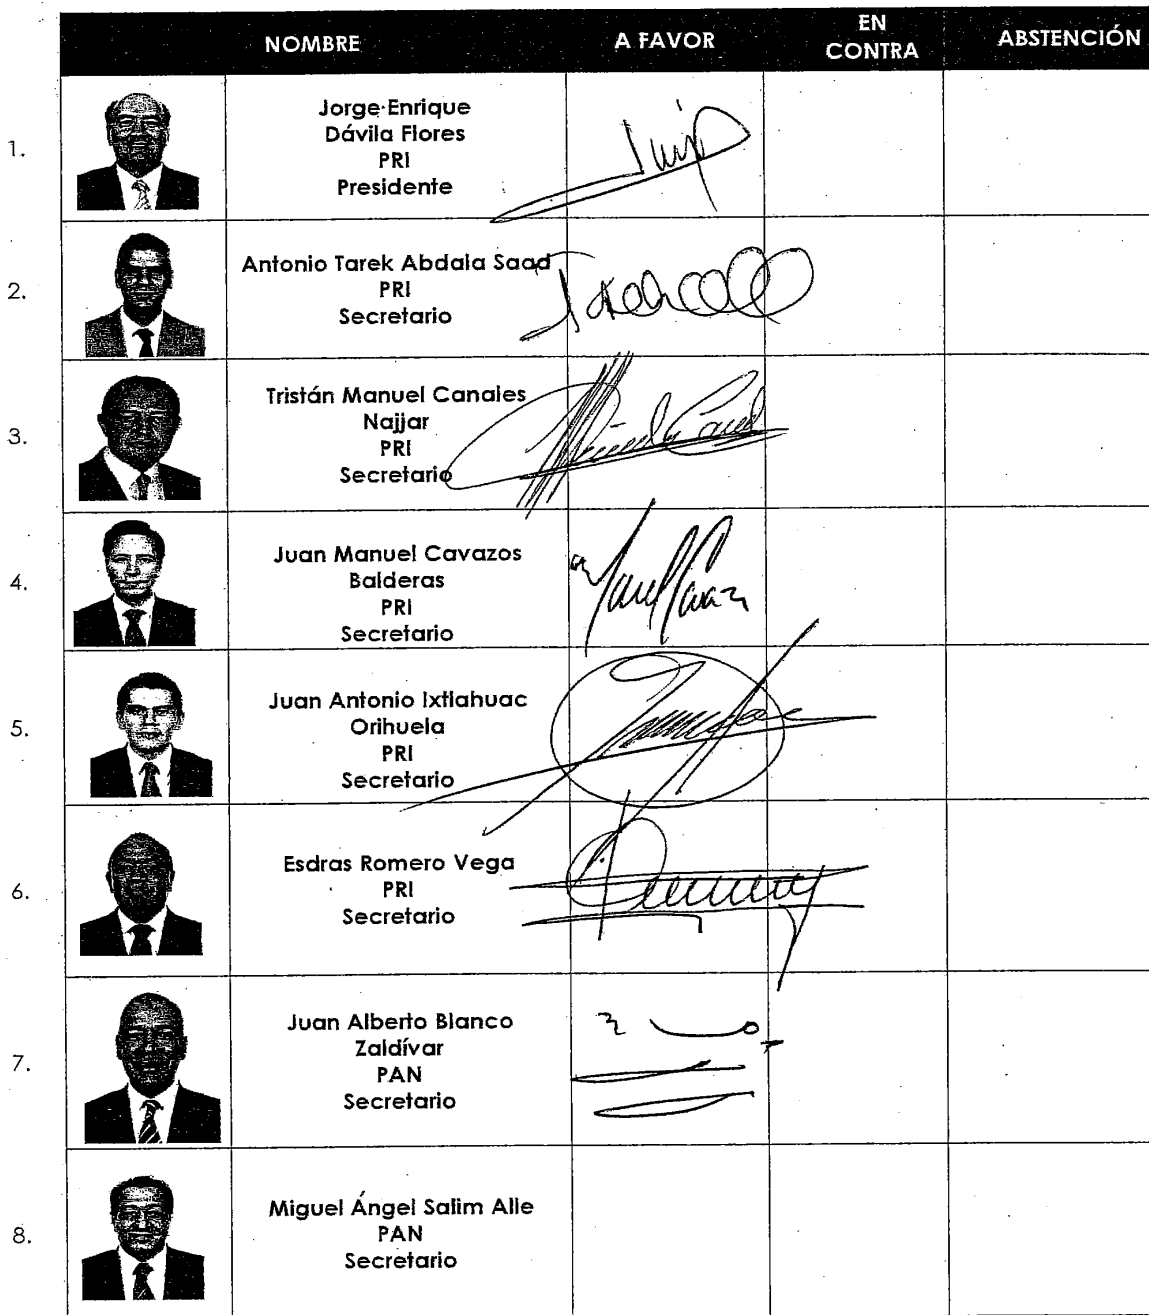 NOMBRE A FAVOR EN CONTRA ABSTENCIÓN
1. Jorge Enrique
Dávila Flores
PRI
Presidente
2. Antonio Tarek Abdala Saad
PRI
Secretario
3. Tristán Manuel Canales
Najjar
PRI
Secretario
4. Juan Manuel Cavazos
Balderas
PRI
Secretario
5. Juan Antonio Ixtlahuac
Orihuela
PRI
Secretario
6. Esdras Romero Vega
PRI
Secretario
7. Juan Alberto Blanco
Zaldívar
PAN
Secretario
8. Miguel Ángel Salim Alle
PAN
Secretario